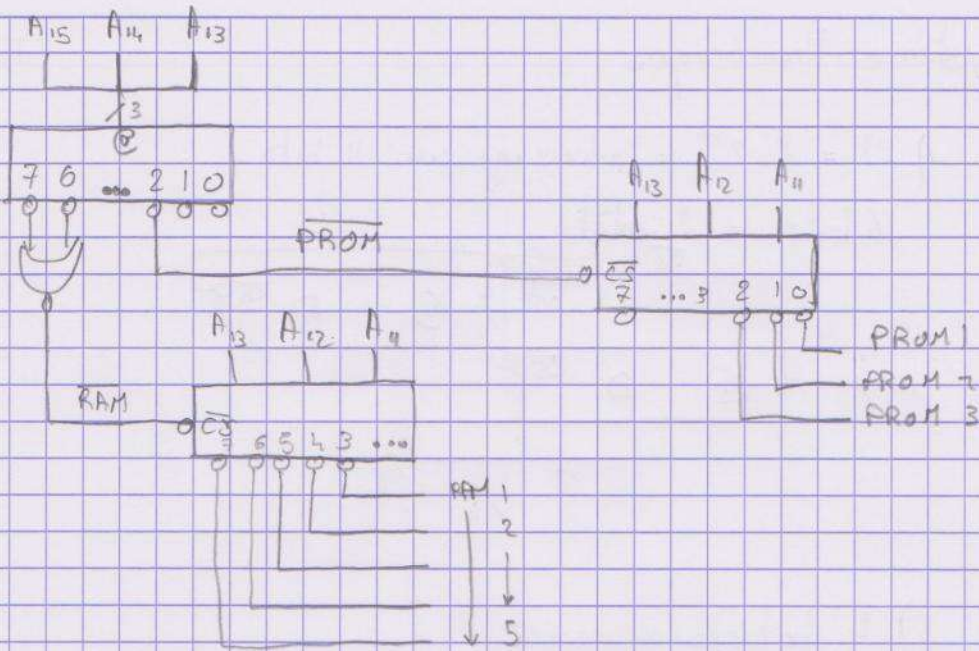 A15 A14 A13
3
@
7 6 ... 2 1 0
PROM
A13 A12 A11
CS
7 ... 3 2 1 0
PROM 1
PROM 2
PROM 3
RAM
A13 A12 A11
CS
7 6 5 4 3 ...
RAM 1
2
5